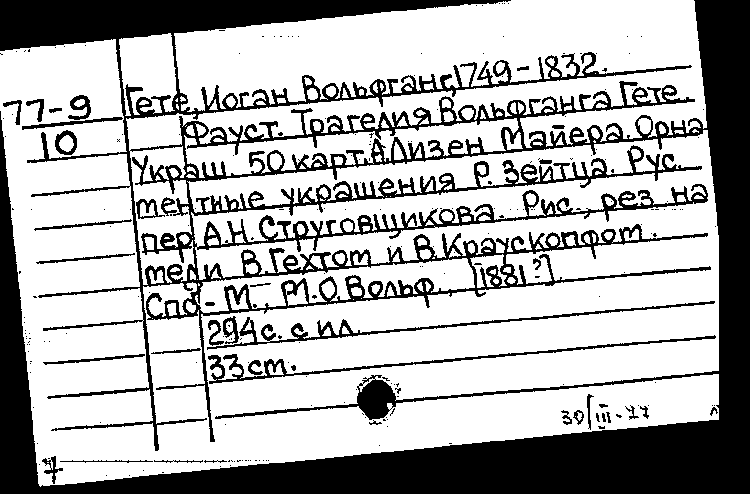 77-9 Гете, Иоган Вольфганг, 1749-1832.
10 Фауст. Трагедия Вольфганга Гете.
Украш. 50 карт. А. Лизен Майера. Орна
ментные украшения Р. Зейтца. Рус.
пер. А.Н. Струговщикова. Рис., рез на
меди В. Гехтом и В. Краускопфом.
Спб - М., М.О. Вольф., [1881?].
294 с. с ил.
33 см.
30/III-77
7